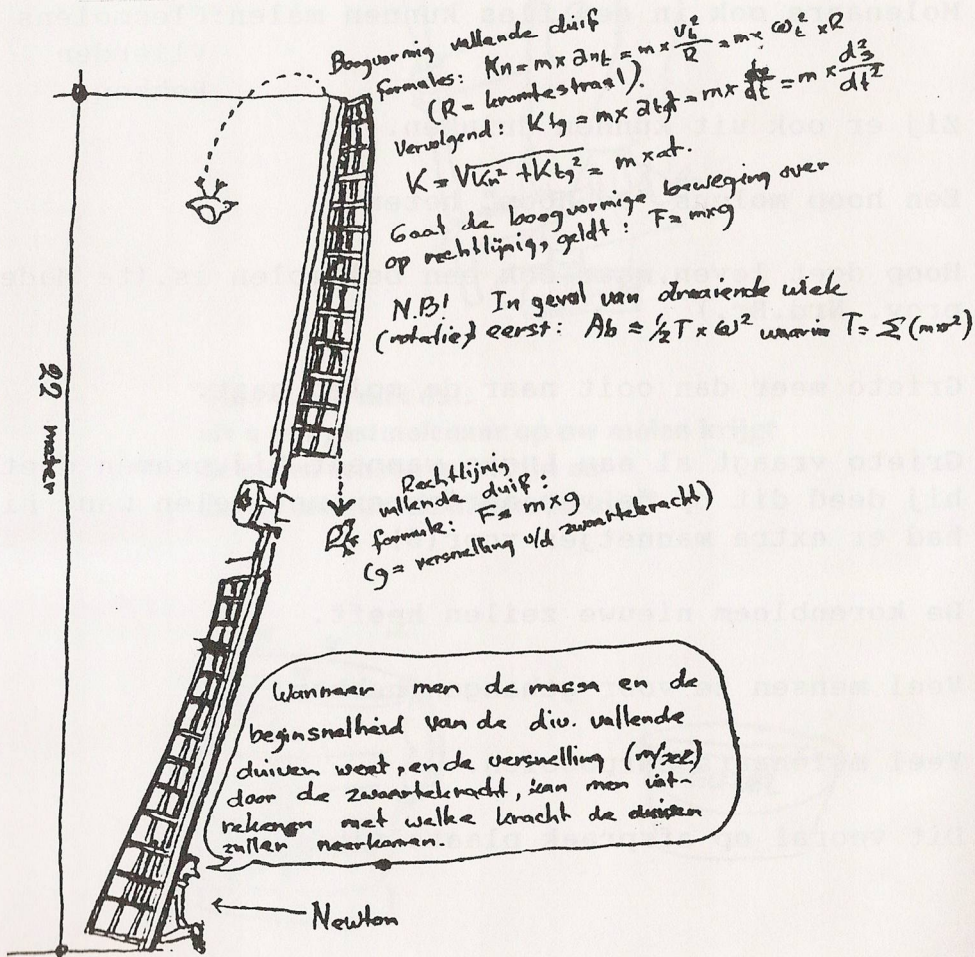 Boogvormig vallende duif
formules: Kn = m x ant = m x vt²/R = m x ωt² x R
(R = kromtestraal).
Vervolgend: Ktg = m x atgt = m x dv/dt = m x d²s/dt²
K = √Kn² + Ktg² = m x at.
Gaat de boogvormige beweging over
op rechtlijnig, geldt: F = m x g
N.B! In geval van draaiende wiek
(rotatie) eerst: Ab = ½ T x ω² waarin T = Σ(mr²)
22 meter
Rechtlijnig
vallende duif:
formule: F = m x g
(g = versnelling v/d zwaartekracht)
Wanneer men de massa en de
beginsnelheid van de div. vallende
duiven weet, en de versnelling (m/sec)
door de zwaartekracht, kan men uit-
rekenen met welke kracht de duiven
zullen neerkomen.
Newton